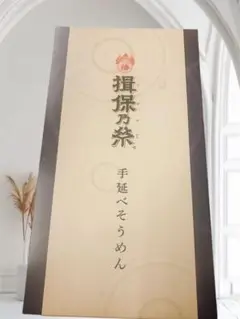 揖保乃糸
手延べそうめん